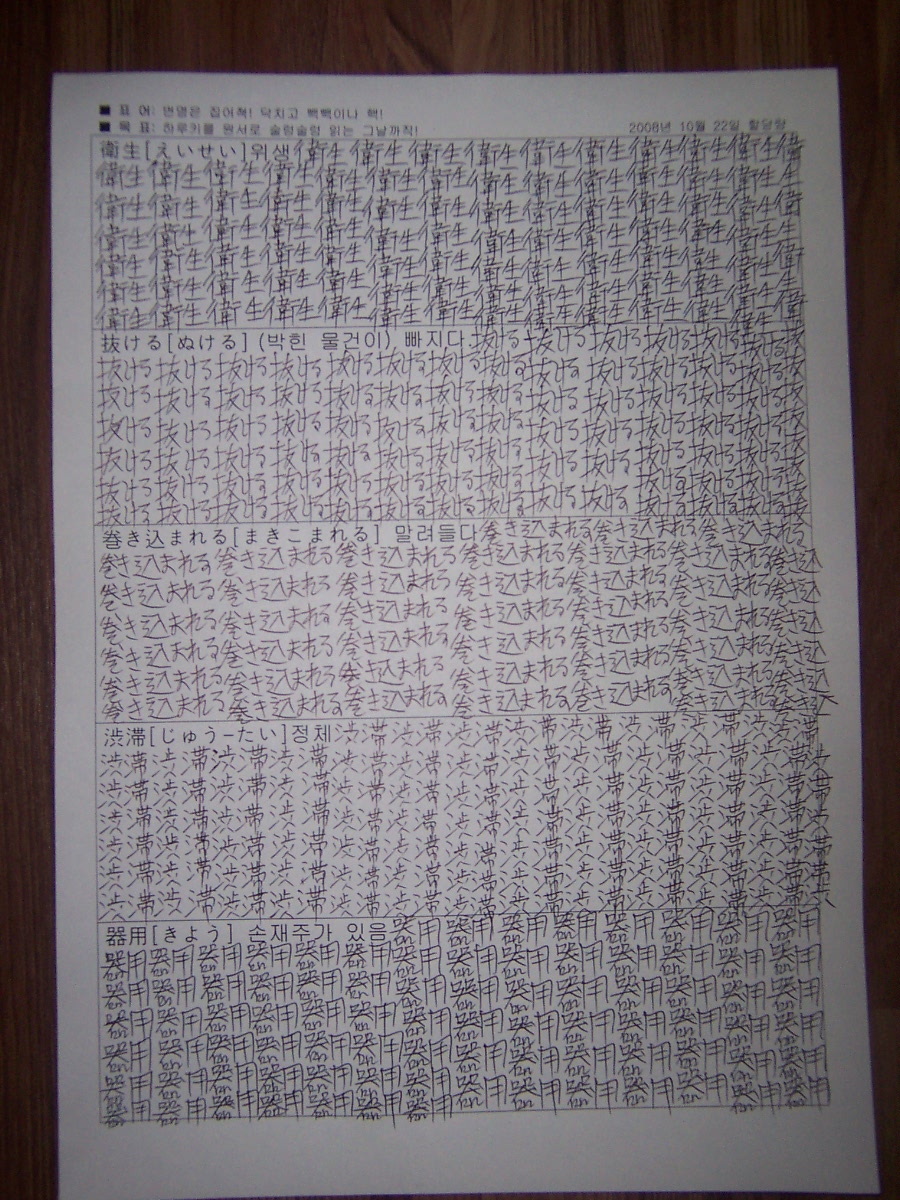 ■ 표 어: 변명은 집어쳑! 닥치고 빽빽이나 핵!
■ 목 표: 하루키를 원서로 술렁술렁 읽는 그날까작! 2008년 10월 22일 할당량
衛生[えいせい]위생 衛生衛生衛生衛生衛生衛生衛生衛生衛生衛
衛生衛生衛生衛生衛生衛生衛生衛生衛生衛生衛生衛生衛生
衛生衛生衛生衛生衛生衛生衛生衛生衛生衛生衛生衛生衛
衛生衛生衛生衛生衛生衛生衛生衛生衛生衛生衛生衛生衛生
衛生衛生衛生衛生衛生衛生衛生衛生衛生衛生衛生衛生衛
衛生衛生衛生衛生衛生衛生衛生衛生衛生衛生衛生衛生衛生
衛生衛生衛生衛生衛生衛生衛生衛生衛生衛生衛生衛生衛
抜ける[ぬける] (박힌 물건이) 빠지다 抜ける抜ける抜ける抜ける抜ける抜ける
抜ける抜ける抜ける抜ける抜ける抜ける抜ける抜ける抜ける抜ける抜ける抜ける抜
抜ける抜ける抜ける抜ける抜ける抜ける抜ける抜ける抜ける抜ける抜ける抜ける抜
抜ける抜ける抜ける抜ける抜ける抜ける抜ける抜ける抜ける抜ける抜ける抜ける抜
抜ける抜ける抜ける抜ける抜ける抜ける抜ける抜ける抜ける抜ける抜ける抜ける抜
抜ける抜ける抜ける抜ける抜ける抜ける抜ける抜ける抜ける抜ける抜ける抜ける抜
抜ける抜ける抜ける抜ける抜ける抜ける抜ける抜ける抜ける抜ける抜ける抜ける抜
巻き込まれる[まきこまれる] 말려들다 巻き込まれる巻き込まれる巻き込まれる
巻き込まれる巻き込まれる巻き込まれる巻き込まれる巻き込まれる巻き込まれる巻き込
巻き込まれる巻き込まれる巻き込まれる巻き込まれる巻き込まれる巻き込まれる巻き込
巻き込まれる巻き込まれる巻き込まれる巻き込まれる巻き込まれる巻き込まれる巻き込
巻き込まれる巻き込まれる巻き込まれる巻き込まれる巻き込まれる巻き込まれる巻き込
巻き込まれる巻き込まれる巻き込まれる巻き込まれる巻き込まれる巻き込まれる巻き込
巻き込まれる巻き込まれる巻き込まれる巻き込まれる巻き込まれる巻き込まれる巻き込
渋滞[じゅう-たい]정체 渋滞渋滞渋滞渋滞渋滞渋滞渋滞渋滞
渋滞渋滞渋滞渋滞渋滞渋滞渋滞渋滞渋滞渋滞渋滞渋滞渋
渋滞渋滞渋滞渋滞渋滞渋滞渋滞渋滞渋滞渋滞渋滞渋滞渋滞
渋滞渋滞渋滞渋滞渋滞渋滞渋滞渋滞渋滞渋滞渋滞渋滞渋
渋滞渋滞渋滞渋滞渋滞渋滞渋滞渋滞渋滞渋滞渋滞渋滞渋滞
渋滞渋滞渋滞渋滞渋滞渋滞渋滞渋滞渋滞渋滞渋滞渋滞渋滞
渋滞渋滞渋滞渋滞渋滞渋滞渋滞渋滞渋滞渋滞渋滞渋滞渋
器用[きよう] 손재주가 있음 器用器用器用器用器用器用器用器用
器用器用器用器用器用器用器用器用器用器用器用器用器用
器用器用器用器用器用器用器用器用器用器用器用器用器用
器用器用器用器用器用器用器用器用器用器用器用器用器用
器用器用器用器用器用器用器用器用器用器用器用器用器用
器用器用器用器用器用器用器用器用器用器用器用器用器用
器用器用器用器用器用器用器用器用器用器用器用器用器用